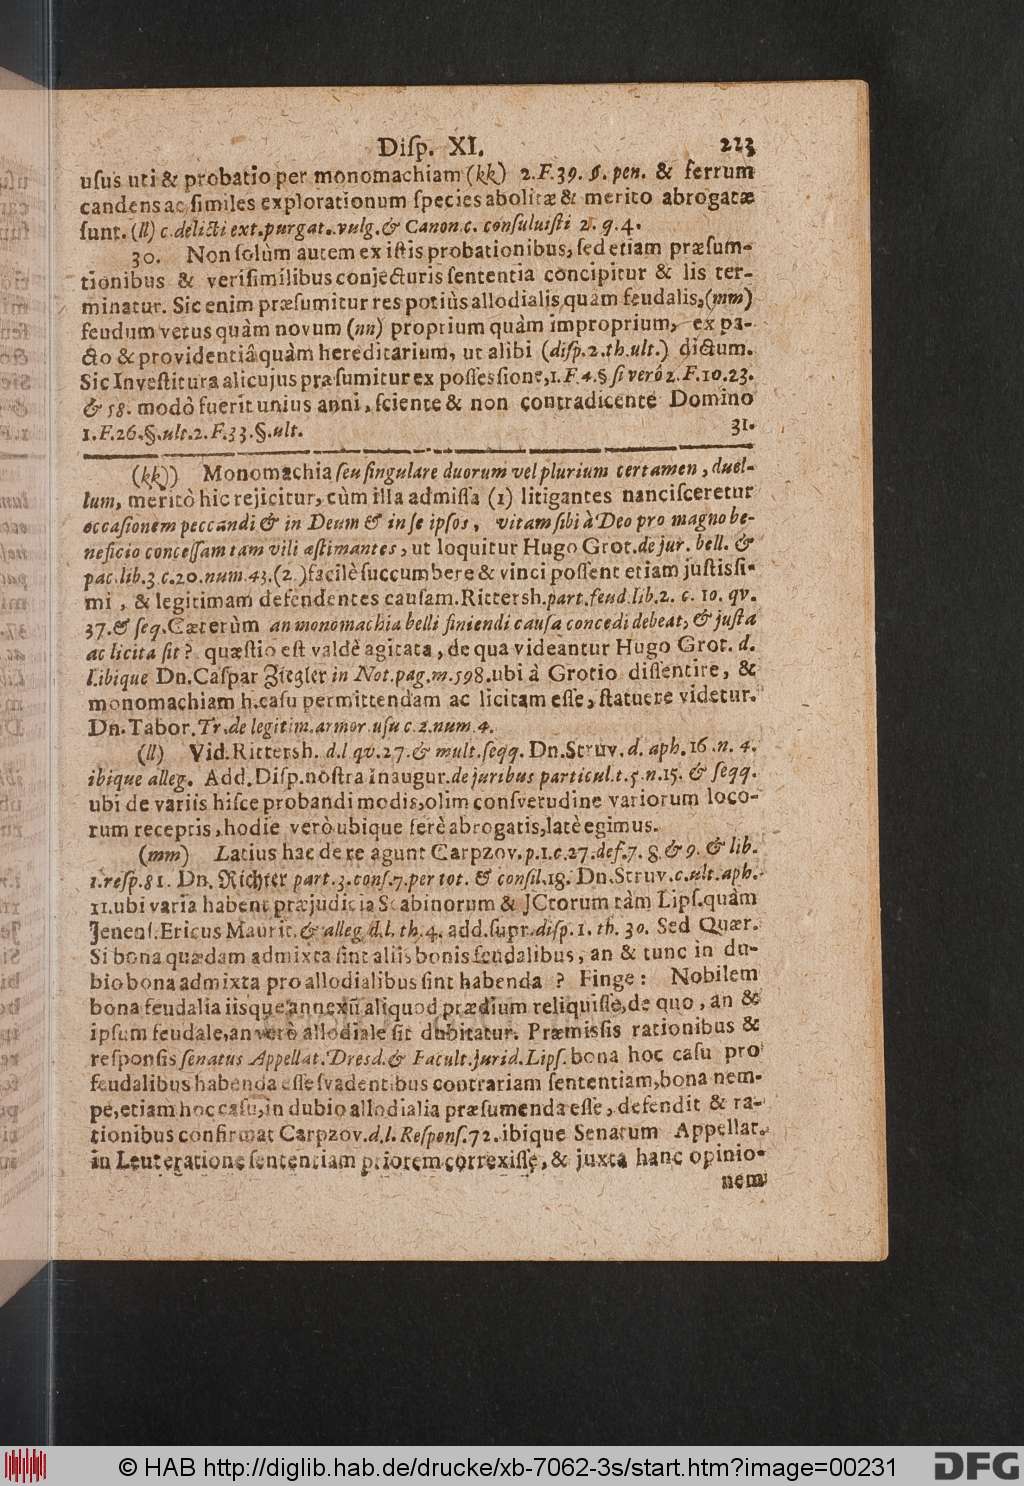 Diſp. XI. 223
uſus uti & probatio per monomachiam (kk) 2. F. 39. §. pen. & ferrum
candens ac ſimiles explorationum ſpecies abolitæ & merito abrogatæ
ſunt. (ll) c. delicti ext. purgat. vulg. & Canon. c. conſuluiſti 2. q. 4.
30. Non ſolùm autem ex iſtis probationibus, ſed etiam præſum-
tionibus & veriſimilibus conjecturis ſententia concipitur & lis ter-
minatur. Sic enim præſumitur res potiùs allodialis quàm feudalis, (mm)
feudum vetus quàm novum (nn) proprium quàm improprium, ex pa-
cto & providentiâ quàm hereditarium, ut alibi (diſp. 2. th. ult.) dictum.
Sic Inveſtitura alicujus præſumitur ex poſſeſſione, 1. F. 4. § ſi verò 2. F. 10. 23.
& 58. modò fuerit unius anni, ſciente & non contradicente Domino
1. F. 26. §. ult. 2. F. 33. §. ult. 31.
(kk)) Monomachia ſeu ſingulare duorum vel plurium certamen, duel-
lum, meritò hic rejicitur, cùm illa admiſſa (1) litigantes nanciſceretur
occaſionem peccandi & in Deum & in ſe ipſos, vitam ſibi à Deo pro magno be-
neficio conceſſam tam vili æſtimantes, ut loquitur Hugo Grot. de jur. bell. &
pac. lib. 3. c. 20. num. 43. (2.) facilè ſuccumbere & vinci poſſent etiam juſtisſi-
mi, & legitimam defendentes cauſam. Rittersh. part. feud. lib. 2. c. 10. qv.
37. & ſeq. Cæterùm an monomachia belli finiendi cauſa concedi debeat, & juſta
ac licita ſit? quæſtio eſt valdè agitata, de qua videantur Hugo Grot. d.
l. ibique Dn. Caſpar Ziegler in Not. pag. m. 598. ubi à Grotio diſſentire, &
monomachiam h. caſu permittendam ac licitam eſſe, ſtatuere videtur.
Dn. Tabor. Tr. de legitim. armor. uſu c. 2. num. 4.
(ll) Vid. Rittersh. d. l. qv. 27. & mult. ſeqq. Dn. Struv. d. aph. 16. n. 4.
ibique alleg. Add. Diſp. noſtra inaugur. de juribus particul. t. 5. n. 15. & ſeqq.
ubi de variis hiſce probandi modis, olim conſvetudine variorum loco-
rum receptis, hodie verò ubique ferè abrogatis, latè egimus.
(mm) Latius hac de re agunt Carpzov. p. 1. c. 27. def. 7. 8. & 9. & lib.
1. reſp. 81. Dn. Richter part. 3. conſ. 7. per tot. & conſil. 18. Dn. Struv. c. ult. aph.
11. ubi varia habent præjudicia Scabinorum & JCtorum tàm Lipſ. quàm
Jenenſ. Ericus Maurit. & alleg. d. l. th. 4. add. ſupr. diſp. 1. th. 30. Sed Quær.
Si bona quædam admixta ſint aliis bonis feudalibus, an & tunc in du-
bio bona admixta pro allodialibus ſint habenda? Finge: Nobilem
bona feudalia iisque annexũ aliquod prædium reliquiſſe, de quo, an &
ipſum feudale, an verò allodiale ſit dubitatur. Præmisſis rationibus &
reſponſis ſenatus Appellat. Dresd. & Facult. Jurid. Lipſ. bona hoc caſu pro
feudalibus habenda eſſe ſvadentibus contrariam ſententiam, bona nem-
pe, etiam hoc caſu, in dubio allodialia præſumenda eſſe, defendit & ra-
tionibus confirmat Carpzov. d. l. Reſponſ. 72. ibique Senatum Appellat.
in Leuteratione ſententiam priorem correxiſſe, & juxta hanc opinio-
nem
© HAB http://diglib.hab.de/drucke/xb-7062-3s/start.htm?image=00231
DFG